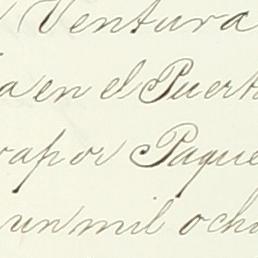 Ventura
a en el Puert
vapor Paque
un mil ocho